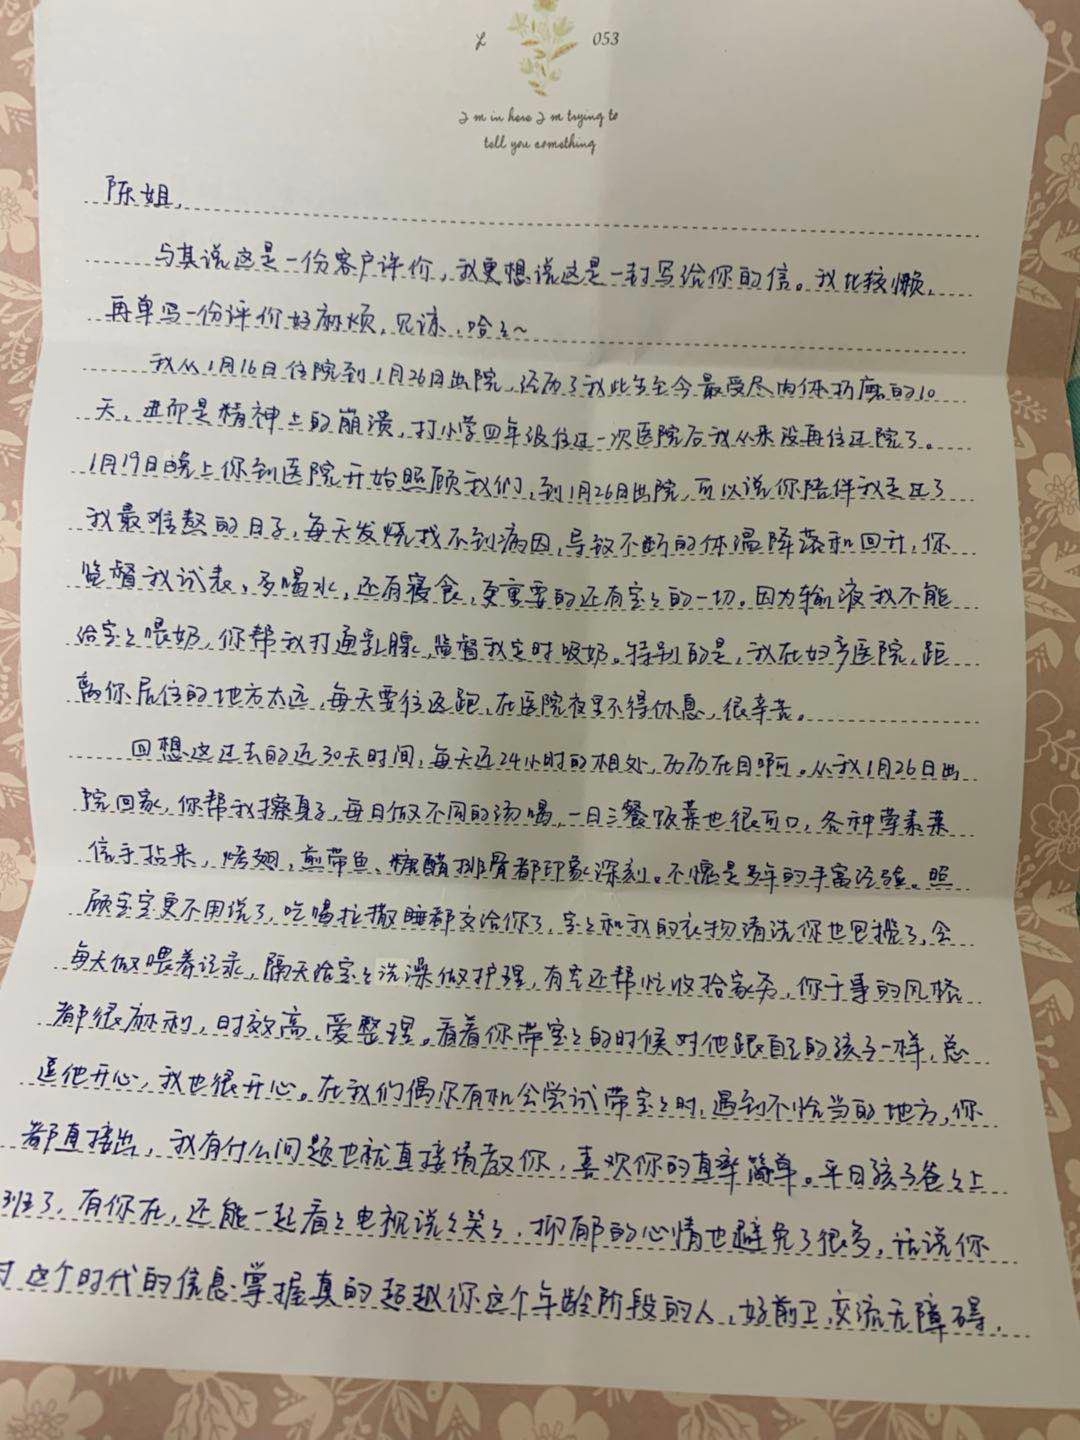 L 053
I m in here I m trying to
tell you something
陈姐,
与其说这是一份客户评价,我更想说这是一封写给你的信。我比较懒,
再单写一份评价好麻烦,见谅,哈哈~
我从1月16日住院到1月26日出院,经历了我此生至今最受尽肉体折磨的10
天,进而是精神上的崩溃,打小学四年级住过一次医院后我从来没再住过院了。
1月19日晚上你到医院开始照顾我们,到1月26日出院,可以说你陪伴我走过了
我最难熬的日子,每天发烧找不到病因,导致不断的体温降落和回升,你
监督我试表、多喝水,还有寝食,更重要的还有宝宝的一切。因为输液我不能
给宝宝喂奶,你帮我打通乳腺,监督我定时吸奶。特别的是,我在妇产医院,距
离你居住的地方太远,每天要往返跑,在医院夜里不得休息,很辛苦。
回想这过去的近30天时间,每天近24小时的相处,历历在目啊。从我1月26日出
院回家,你帮我擦身子,每日做不同的汤喝,一日三餐饭菜也很可口,各种荤素菜
信手拈来,烤翅,煎带鱼、糖醋排骨都印象深刻。不愧是多年的丰富经验。照
顾宝宝更不用说了,吃喝拉撒睡都交给你了,宝宝和我的衣物清洗你也包揽了,会
每天做喂养记录,隔天给宝宝洗澡做护理,有空还帮忙收拾家务,你干事的风格
都很麻利,时效高、爱整理。看着你带宝宝的时候对他跟自己的孩子一样,总
逗他开心,我也很开心。在我们偶尔有机会尝试带宝宝时,遇到不恰当的地方,你
都直接出,我有什么问题也就直接请教你,喜欢你的直率简单。平日孩子爸爸上
班了,有你在,还能一起看看电视说说笑笑,抑郁的心情也避免了很多,话说你
对这个时代的信息掌握真的超越你这个年龄阶段的人,好前卫,交流无障碍,